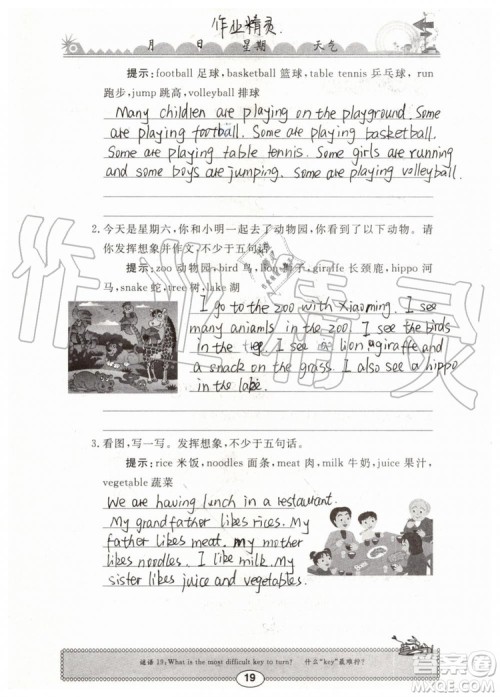 作业精灵
月 日 星期 天气
提示:football 足球,basketball 篮球,table tennis 乒乓球, run
跑步,jump 跳高,volleyball 排球
Many children are playing on the playground. Some
are playing football. Some are playing basketball.
Some are playing table tennis. Some girls are running
and some boys are jumping. Some are playing volleyball.
2. 今天是星期六,你和小明一起去了动物园,看见了以下动物。请
你发挥想象并作文,不少于五句话。
提示:zoo 动物园,bird 鸟,lion 狮子,giraffe 长颈鹿,hippo 河
马,snake 蛇,tree 树,lake 湖
I go to the zoo with Xiaoming. I see
many aniamls in the zoo. I see the birds
in the I see lion, giraffe and
a snack on the grass. I see a hippo
in the lake.
3. 看图,写一写。发挥想象,不少于五句话。
提示:rice 米饭,noodles 面条,meat 肉,milk 牛奶,juice 果汁,
vegetable 蔬菜
We are having lunch in a restaurant.
My grandfather likes rices. My
father likes meat. my mother
likes noodles. I like milk. My
sister likes juice and vegetables.
谜语 19:What is the most difficult key to turn? 什么“key”最难拧?
19
作业精灵
答案圈
MXQE.COM